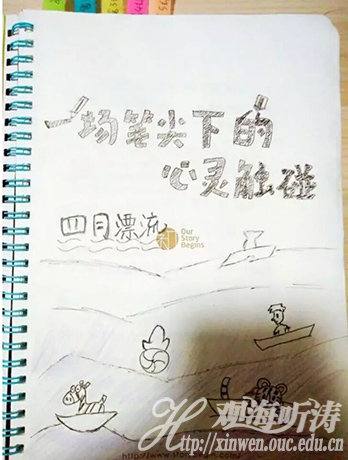 一场笔尖下的
心灵触碰
四月漂流
Our
Story
Begins
观海听涛
http://www.stor
http://xinwen.ouc.edu.cn